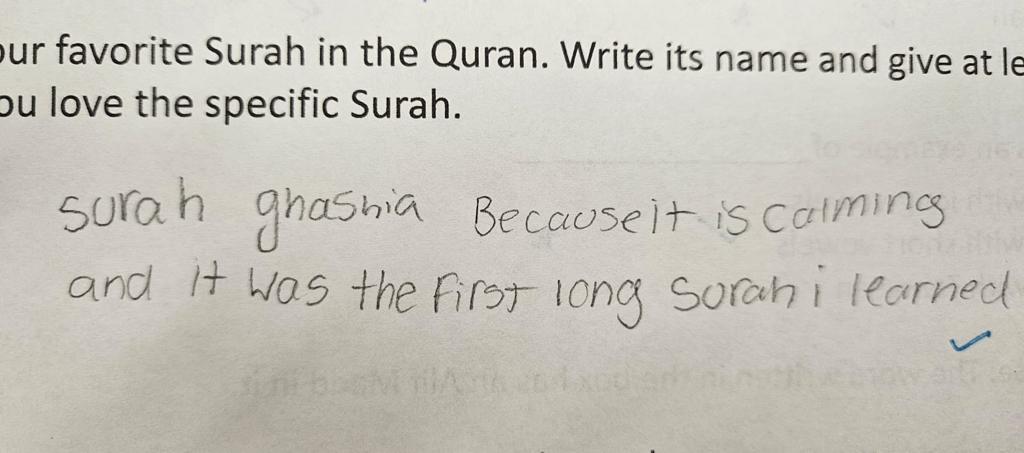 our favorite Surah in the Quran. Write its name and give at le
ou love the specific Surah.
surah ghashia Because it is calming
and it was the first long surah i learned